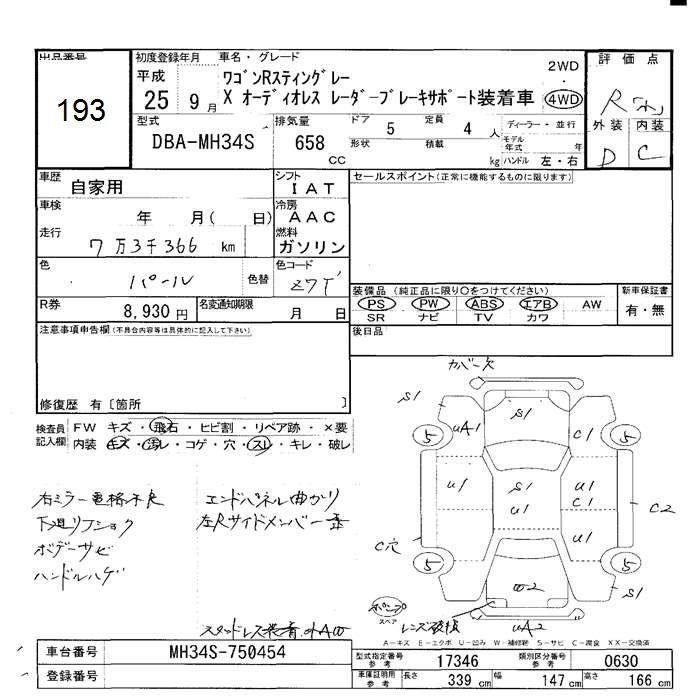 出品番号
193
初度登録年月
車名・グレード
平成
25 9月
ワゴンRスティングレー
X オーディオレス レーダーブレーキサポート装着車
2WD
・
4WD
評価点
R
外装 内装
D C
型式
DBA-MH34S
排気量
658
CC
ドア 5
定員 4 人
形状
積載 kg
ディーラー・並行
モデル年式 年
ハンドル 左・右
車歴 自家用
シフト IAT
車検 年 月( 日)
冷房 AAC
走行 7万3千366 km
燃料 ガソリン
色 パール 色替
色コード Z7T
R券 8,930円
名変通知期限 月 日
セールスポイント(正常に機能するものに限ります)
装備品 (純正品に限り○をつけてください)
PS PW ABS エアB AW
SR ナビ TV カワ
新車保証書
有・無
後日品
注意事項申告欄(不具合内容等は具体的に記入して下さい)
修復歴 有〔箇所 〕
検査員記入欄
FW キズ・飛石・ヒビ割・リペア跡・×要
内装 キズ・汚レ・コゲ・穴・スレ・キレ・破レ
右ミラー電格不良
下廻りフショク
ボデーサビ
ハンドルハゲ
エンドパネル曲がり
左Rサイドメンバー
スタッドレス装着
カバー欠
S1
S1
UA1
C1
5
5
U1
S1
U1
U1
C1
C2
C穴
U1
5
5
2
S1
スペア
レンズ破損
UA2
A-キズ E-エクボ U-凹み W-補修跡 S-サビ C-腐食 XX-交換済
車台番号 MH34S-750454
登録番号
型式指定番号 参考 17346
類別区分番号 参考 0630
車庫証明用 参考
長さ 339 cm
幅 147 cm
高さ 166 cm